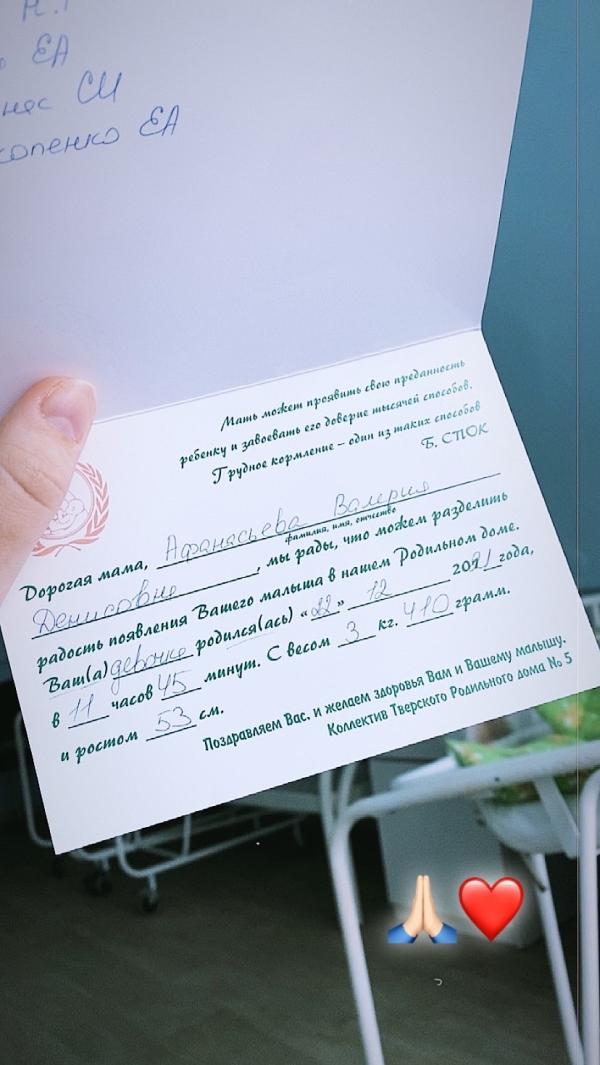 Н.Г
ЕА
нес СИ
копенко ЕА
Мать может проявить свою преданность
ребенку и завоевать его доверие тысячей способов.
Грудное кормление – один из таких способов
Б. СПОК
Дорогая мама, Афанасьева Валерия
фамилия, имя, отчество
Денисовна, мы рады, что можем разделить
радость появления Вашего малыша в нашем Родильном доме.
Ваш(а) девочка родился(ась) «22» 12 2021 года,
в 11 часов 45 минут. С весом 3 кг. 410 грамм.
и ростом 53 см.
Поздравляем Вас. и желаем здоровья Вам и Вашему малышу.
Коллектив Тверского Родильного дома № 5